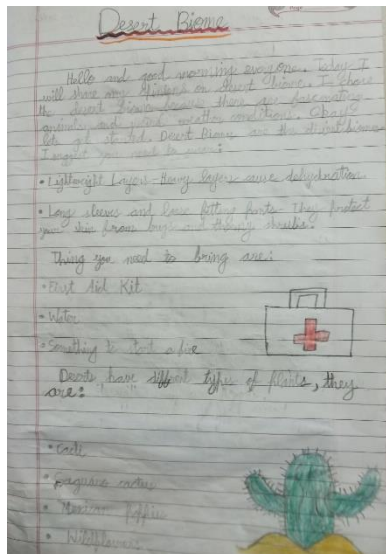 Desert Biome
Hello and good morning everyone. Today I
will share my opinion on desert biome. I chose
the desert biome because there are fascinating
animals and weather conditions. Okay
lets get started. Desert Biome are the
I suggest you need to wear:
• Lightweight Layers - Heavy layers cause dehydration
• Long sleeves and loose fitting pants. They protect
your skin from bugs and thorny shrubs.
Thing you need to bring are:
• First Aid Kit
• Water
• Something to start a fire
Deserts have diffrent types of plants, they
are:
• Cacti
• Saguaro cactus
• Mexican Poppies
• Wildflowers